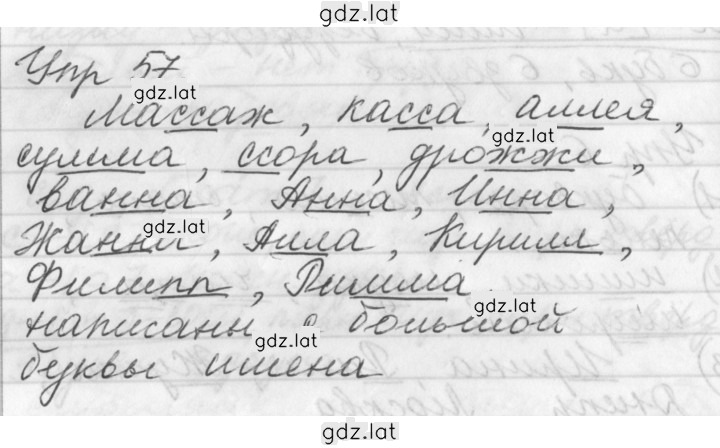 gdz.lat
Упр 57
gdz.lat
Массаж, касса, аллея,
gdz.lat
сумма, ссора, дрожжи,
ванна, Анна, Инна,
gdz.lat
Жанна, Алла, Кирилл,
Филипп, Римма
gdz.lat
написаны с большой
gdz.lat
буквы имена
gdz.lat